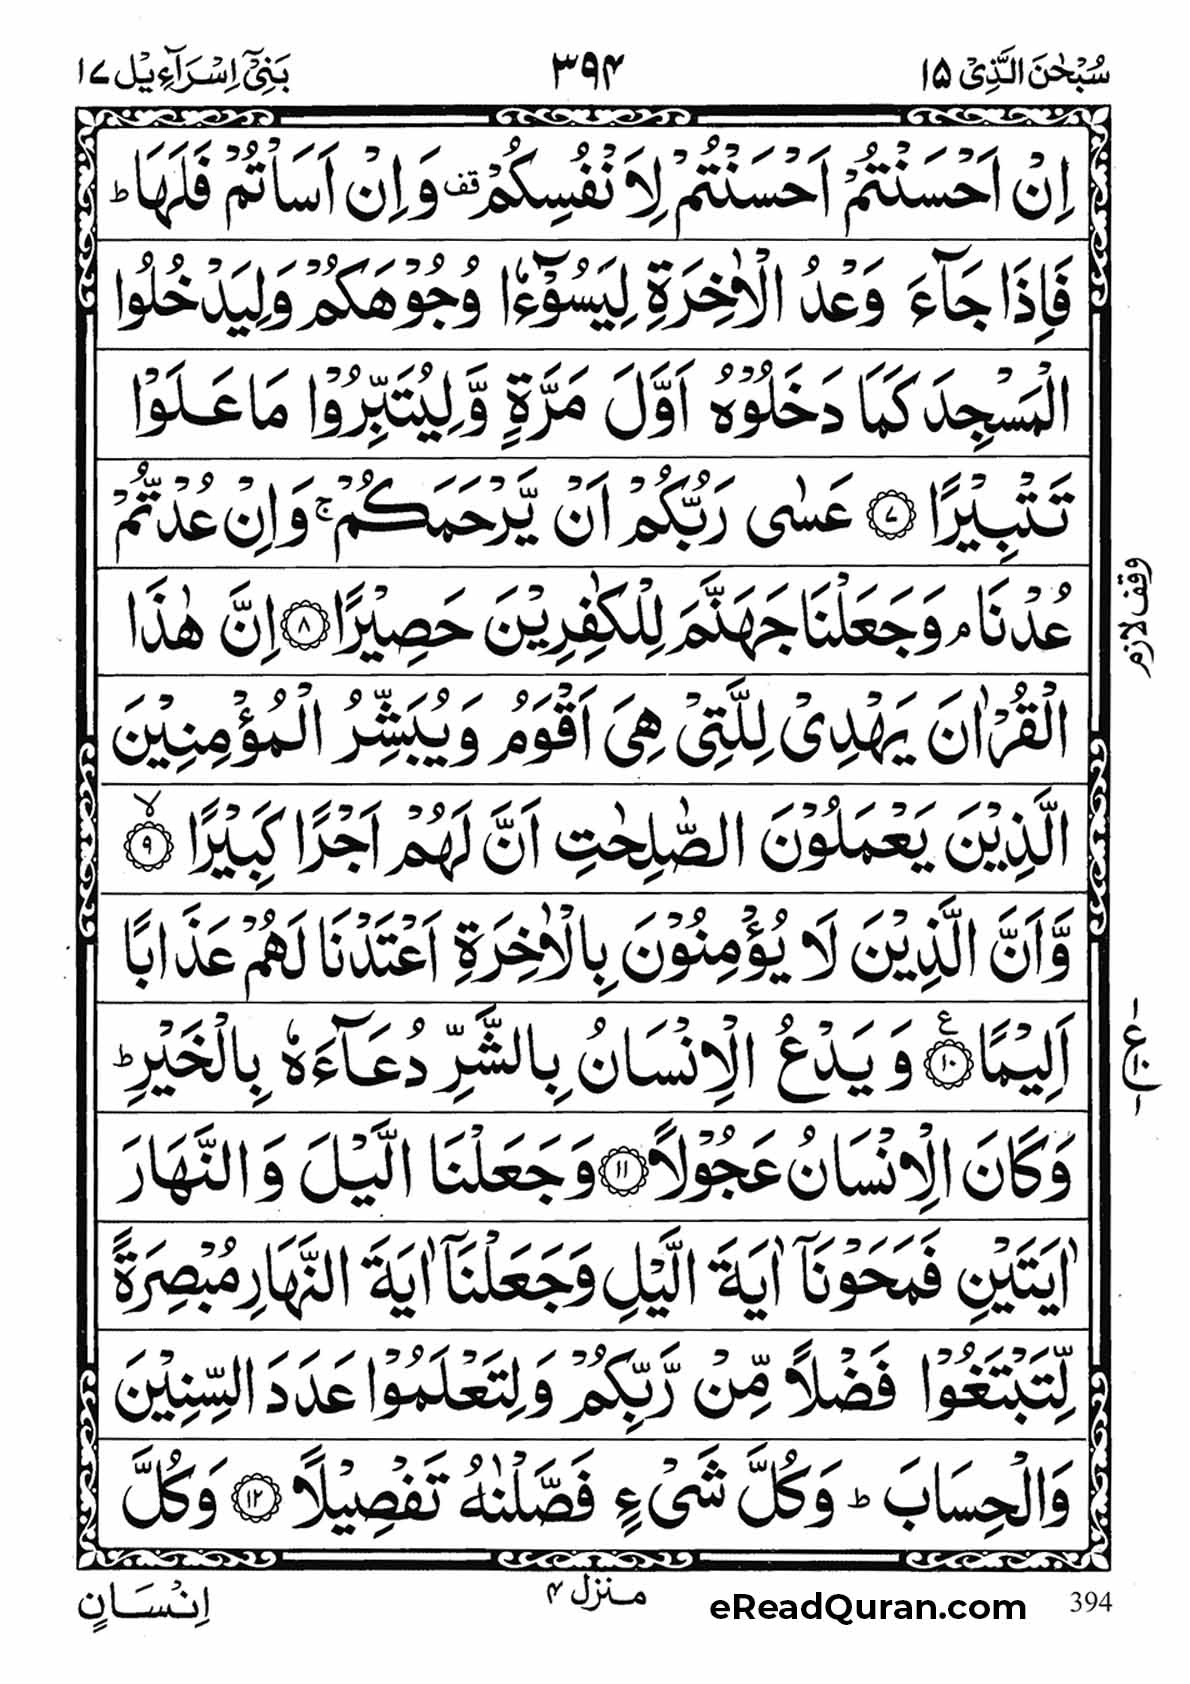 سُبْحٰنَ الَّذِیْ ۱۵ ۳۹۴ بَنِیْۤ اِسْرَآءِیْل ۱۷
اِنْ اَحْسَنْتُمْ اَحْسَنْتُمْ لِاَنْفُسِكُمْ ۫ قف وَاِنْ اَسَاْتُمْ فَلَهَا ؕ
فَاِذَا جَآءَ وَعْدُ الْاٰخِرَةِ لِیَسُوْٓءٗا وُجُوْهَكُمْ وَلِیَدْخُلُوا
الْمَسْجِدَ كَمَا دَخَلُوْهُ اَوَّلَ مَرَّةٍ وَّلِیُتَبِّرُوْا مَا عَلَوْا
تَتْبِیْرًا ۷ عَسٰی رَبُّكُمْ اَنْ یَّرْحَمَكُمْ ۚ وَاِنْ عُدْتُّمْ
عُدْنَا ۘ وَجَعَلْنَا جَهَنَّمَ لِلْكٰفِرِیْنَ حَصِیْرًا ۸ اِنَّ هٰذَا
وقف لازم
الْقُرْاٰنَ یَهْدِیْ لِلَّتِیْ هِیَ اَقْوَمُ وَیُبَشِّرُ الْمُؤْمِنِیْنَ
الَّذِیْنَ یَعْمَلُوْنَ الصّٰلِحٰتِ اَنَّ لَهُمْ اَجْرًا كَبِیْرًا ۹ ۙ
وَّاَنَّ الَّذِیْنَ لَا یُؤْمِنُوْنَ بِالْاٰخِرَةِ اَعْتَدْنَا لَهُمْ عَذَابًا
اَلِیْمًا ۱۰ ع وَیَدْعُ الْاِنْسَانُ بِالشَّرِّ دُعَآءَهٗ بِالْخَیْرِ ؕ
وَكَانَ الْاِنْسَانُ عَجُوْلًا ۱۱ وَجَعَلْنَا الَّیْلَ وَالنَّهَارَ
اٰیَتَیْنِ فَمَحَوْنَاۤ اٰیَةَ الَّیْلِ وَجَعَلْنَاۤ اٰیَةَ النَّهَارِ مُبْصِرَةً
لِّتَبْتَغُوْا فَضْلًا مِّنْ رَّبِّكُمْ وَلِتَعْلَمُوْا عَدَدَ السِّنِیْنَ
وَالْحِسَابَ ؕ وَكُلَّ شَیْءٍ فَصَّلْنٰهُ تَفْصِیْلًا ۱۲ وَكُلَّ
394 eReadQuran.com منزل ۴ اِنْسَانٍ